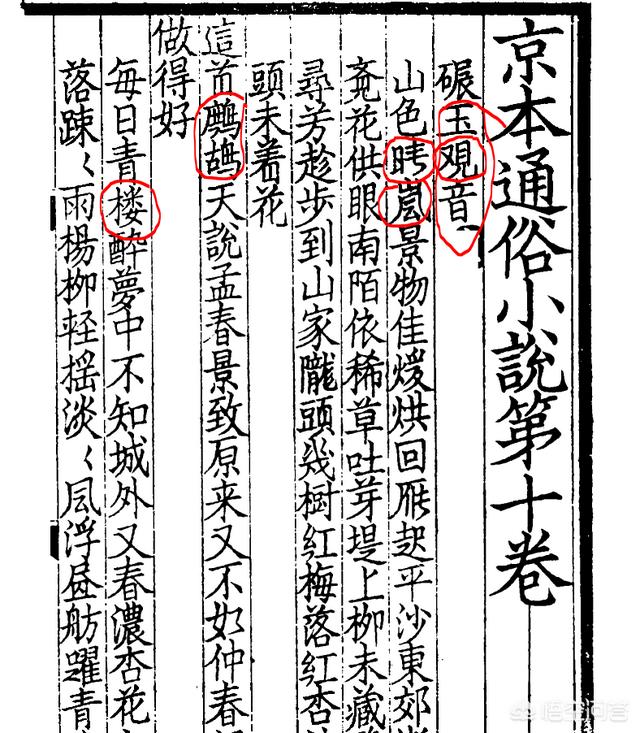 京本通俗小說第十卷
碾玉覌音
山色晴嵐景物佳煖烘回雁起平沙東郊
斍花供眼南陌依稀草吐芽堤上柳未藏
尋芳趁步到山家隴頭幾樹红梅落红杏
頭未着花
這首鷓鴣天說孟春景致原来又不如仲春
做得好
每日青楼醉夢中不知城外又春濃杏花
落踈〻雨楊柳軽揺淡〻風浮𦘕舫躍青
悟空问答